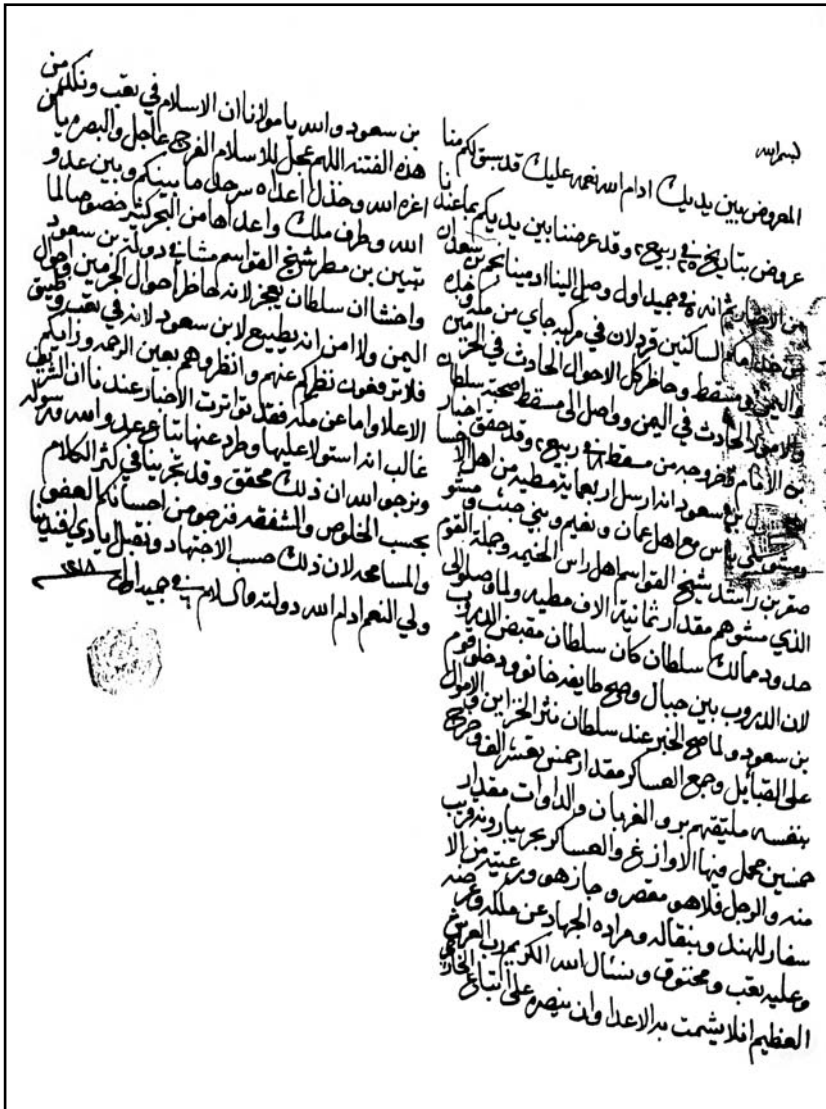 لبسم الله
المعروض بين يديك ادام الله نعمه عليك قد سبق لكم منا
عروض بتاريخ في ٢٥ ربيع ٢ وقد عرضنا بين يديكم بما عندنا
من الاخبار ثم انه في جميد اول وصل الينا اد مينا بحم بن
الساكنين في مركبه جاي من مكه و
واليمن ومسقط وحاظر كل الاحوال الحادث في الحرمين
والامور الحادث في اليمن وواصل الى مسقط صحبة سلطان
بن الامام وخروجه من مسقط في ربيع ٢ وقد حقق اخبار
بن سعود انه ارسل اربعماية مطيه من اهل الاحسا
مع اهل عمان ونعيم وبني جتب و
صقر بن راشد شيخ القواسم اهل راس الخيمه وجملة القوم
الذي مشوهم مقدار ثمانية الاف مطيه ولما وصلو الى
حدود ممالك سلطان كان سلطان مقبض الدروب
لان الدروب بين جبال وصح طايفه خانو ودخلو قوم
بن سعود ولما صح الخبر عند سلطان نثر الخزاين والاموال
على القبايل وجمع العساكر مقدار خمس الف وخرج
بنفسه ملتيقهم برو الغربان والداوات مقدار
خمسين محمل فيها الاوازغ والعساكر بحر يبارونه قريب
منه والرجل فلا هو مقصر و جازهو من الا
سفار للهند وبنقاله ومراده الجهاد عن ملكه وعرضه
وعليه تعب ومخنوق ونسئال الله الكريم رب العرش
العظيم افلا يشمت به الاعدا وان ينصره على اتباع
بن سعود والله يا مولانا ان الاسلام في تعب ونكد من
هذه الفتنه اللهم عجل للاسلام الفرج عاجل والبصره يا
اعزه الله وخذل اعداه سرحل ما بينكم وبين عدو
الله وطرف ملك واعداها من البحر كثير خصوصا لما
تبين بن مطر شيخ القواسم مشا في دولة بن سعود
واخشا ان سلطان يعجز لانه حاظر احوال الحرمين واحوال
اليمن ولا امن انه يطيع لابن سعود لانه في تعب وضيق
فلا ترفعون نظركم عنهم وانظروهم بعين الرحمه ورايكم
الاعلا واما عن مكه فقد تواترت الاخبار عندنا ان الشريف
غالب انه استولا عليها وطرد عنها تباع عدو الله ورسوله
ونرجو الله ان ذلك محقق وقد تجرينا في كثر الكلام
بحسب الخلوص والشفقه فنرجو من احسانكم العفو
والمسامحه لان ذلك حسب الاجتهاد ونقبل ايادي افندينا
ولي النعم ادام الله دولته والسلام في جميد اول ١٢١٨